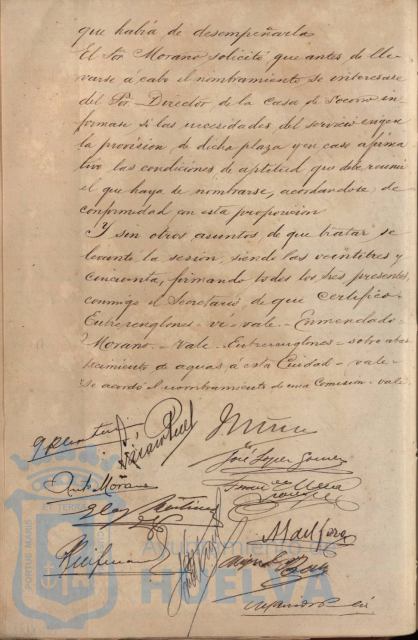 que había de desempeñarla
El Sor Morano solicitó que antes de lle-
varse á cabo el nombramiento se interesase
del Sor Director de la Casa de Socorro in-
formase si las necesidades del servicio exigen
la provision de dicha plaza y en caso afirma
tivo las condiciones de aptitud que debe reunir
el que haya de nombrarse, acordandose de
conformidad con esta proposicion
Y sin otros asuntos de que tratar se
levantó la sesión, siendo las veintitres y
cincuenta, firmando todos los Sres presentes,
conmigo el Secretario de que certifico.
Entrerenglones - vi - vale - Enmendado -
Morano - Vale - Entrerenglones - sobre abas
tecimiento de aguas á esta Ciudad - vale -
Se acordó el nombramiento de una Comisión - vale
José Lopez Gomez
Antº Morano
PORTUS MARIS
Ayuntamiento
HUELVA